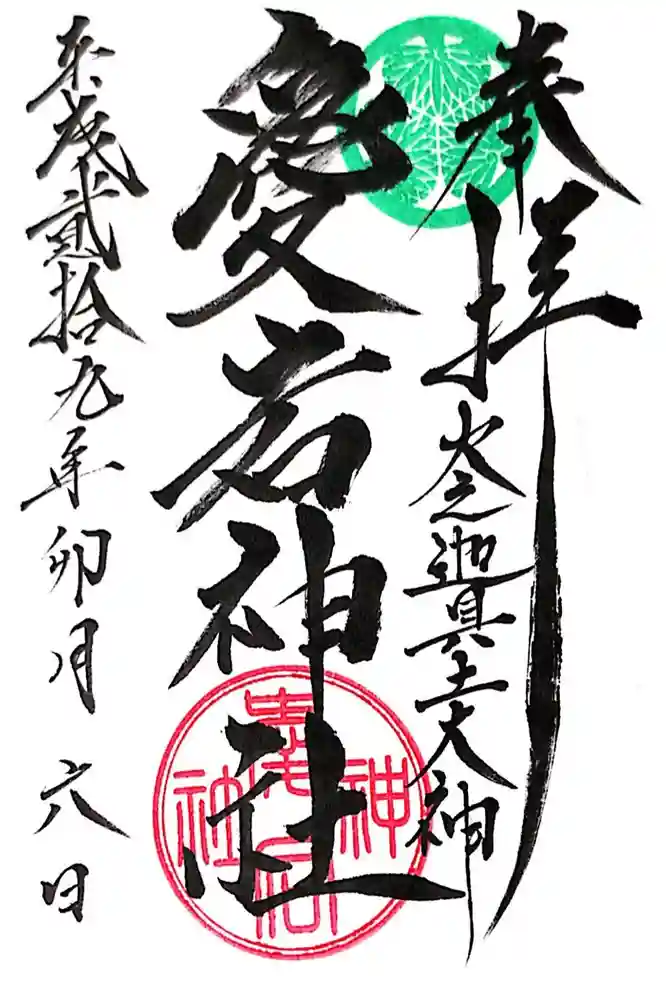 奉拝
火之迦具土大神
愛宕神社
平成貳拾九年卯月六日
愛宕神社